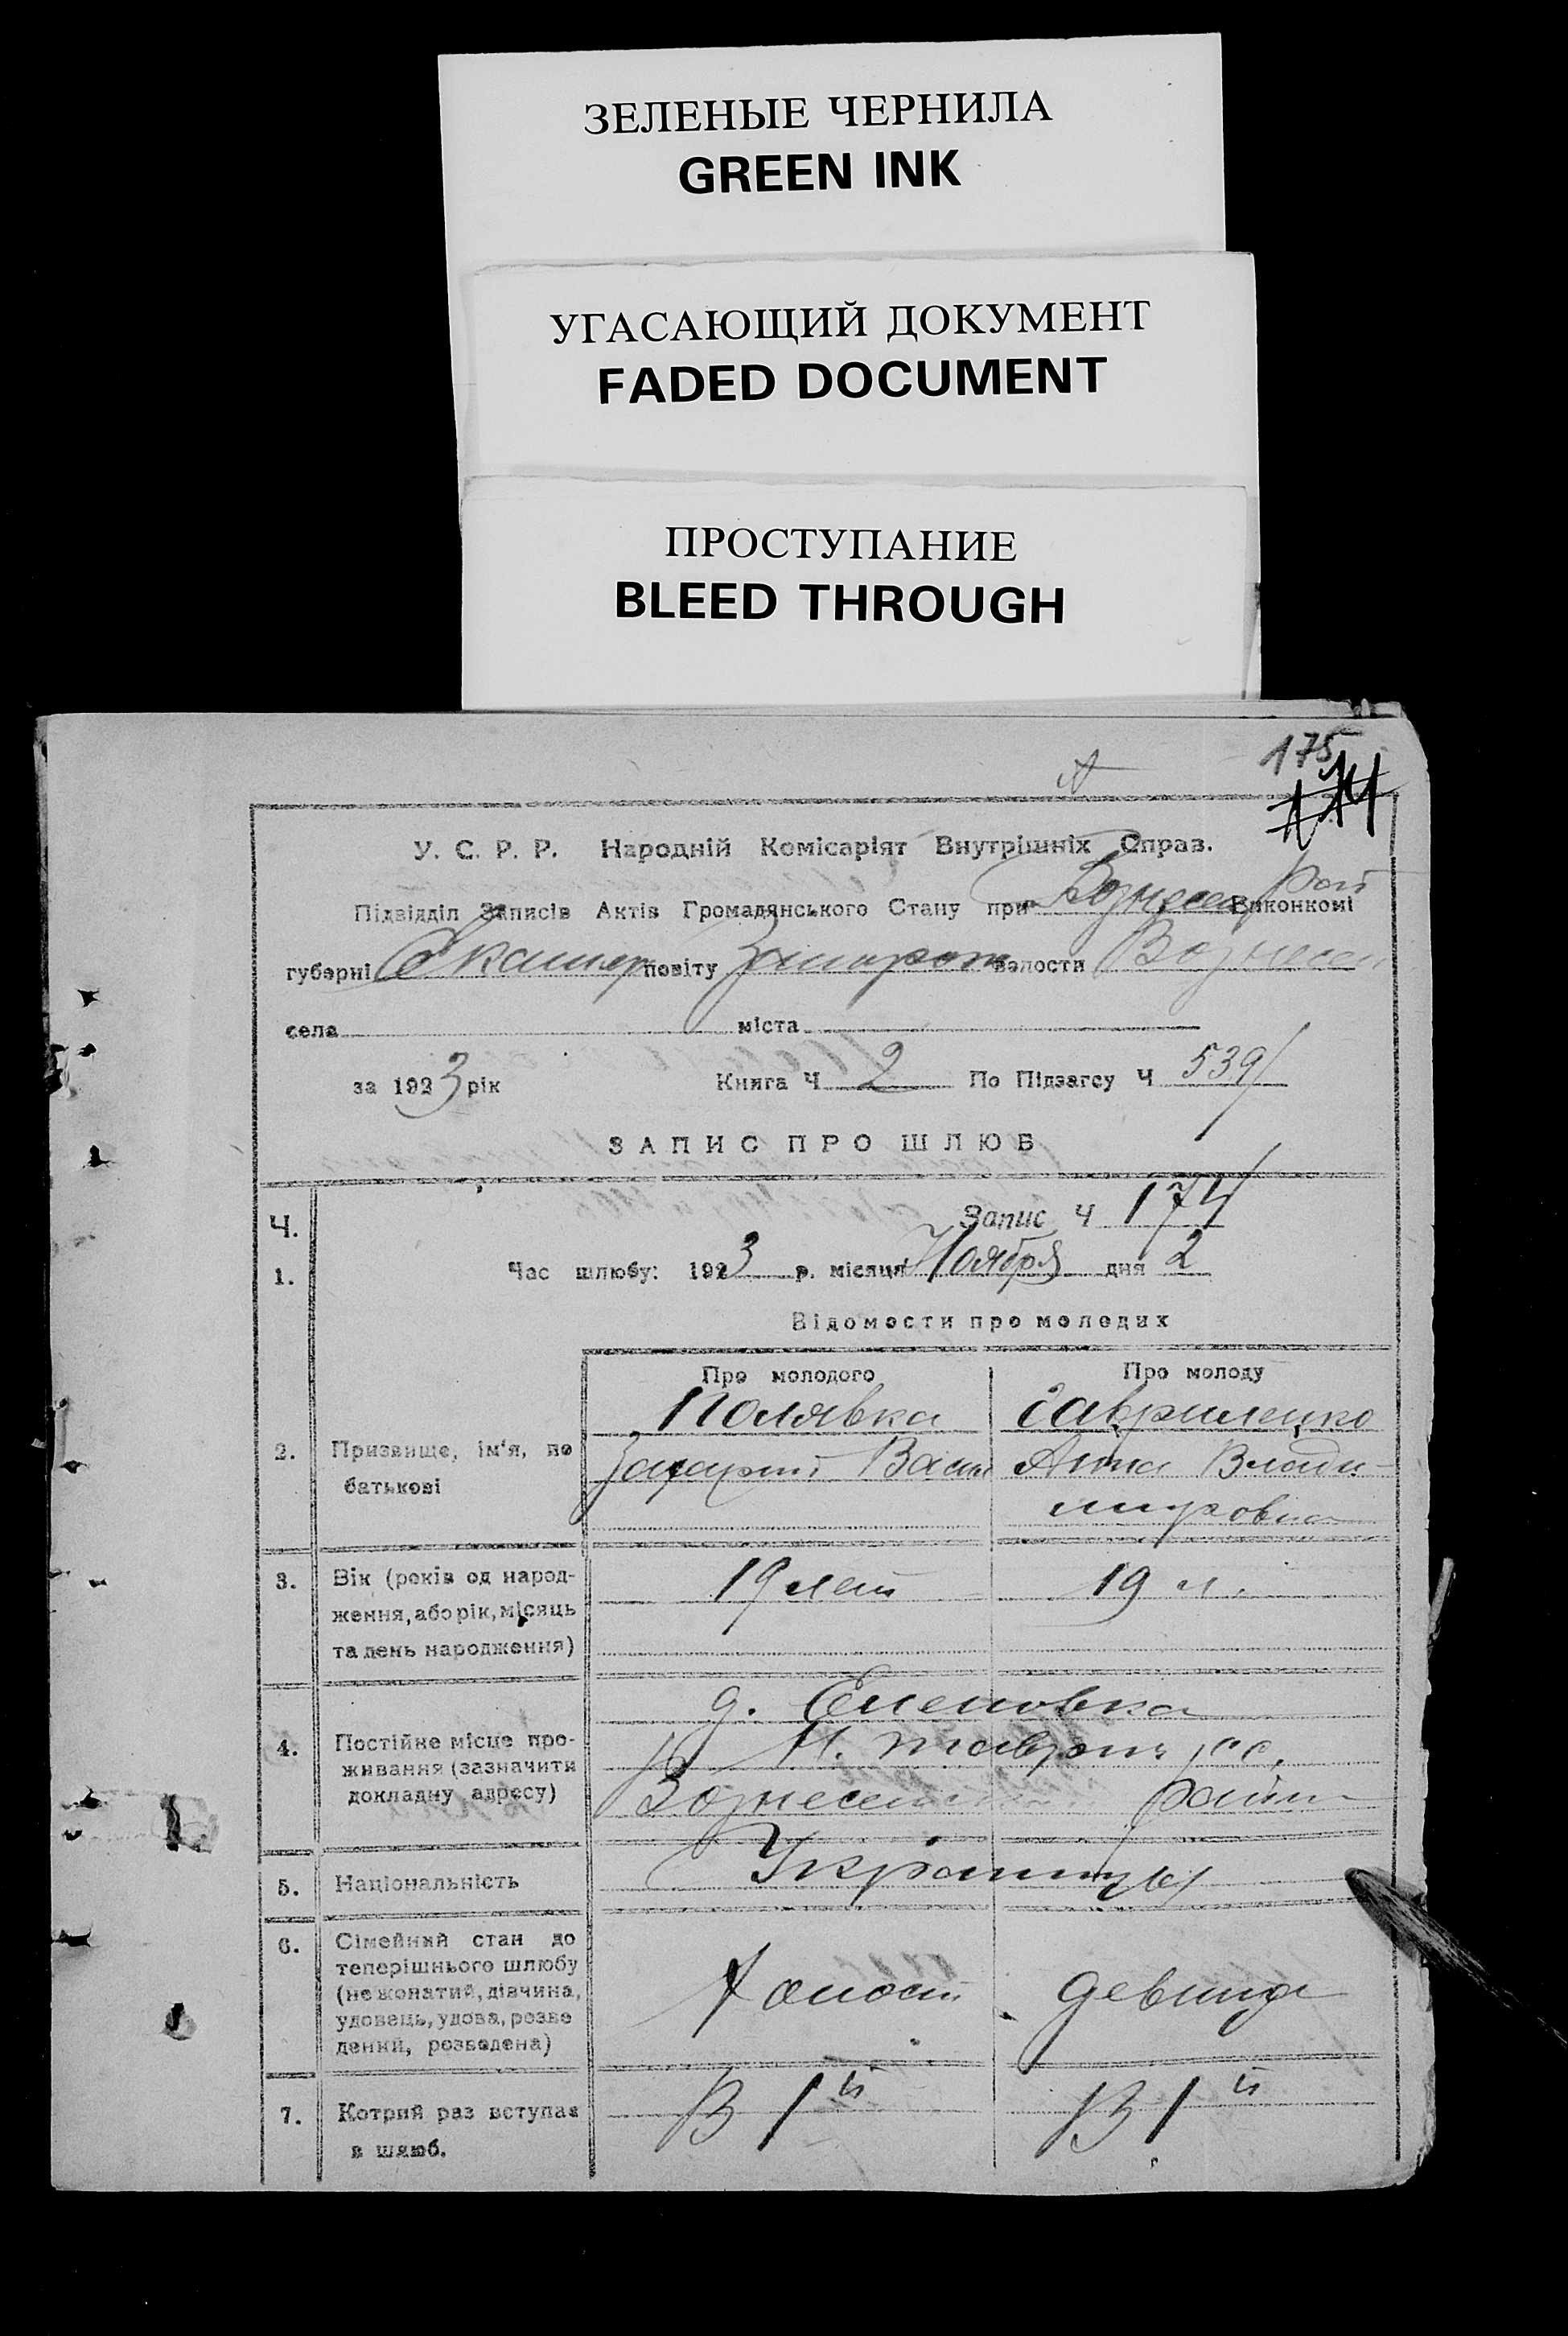 ЗЕЛЕНЫЕ ЧЕРНИЛА
GREEN INK
УГАСАЮЩИЙ ДОКУМЕНТ
FADED DOCUMENT
ПРОСТУПАНИЕ
BLEED THROUGH
175
У. С. Р. Р. Народній Комісаріят Внутрішніх Справ.
Підвідділ Записів Актів Громадянського Стану при Вознесен рай Виконкомі
губерні Екатер повіту Запорож волости Вознесен
села міста
за 1923 рік Книга Ч 2 По Підзагсу Ч 539
ЗАПИС ПРО ШЛЮБ
Ч. Запис Ч 174
1. Час шлюбу: 1923 р. місяця Ноября дня 2
Відомости про молодих
Про молодого Про молоду
Полявка Гавриленко
2. Призвище, ім'я, по Захарий Васил Анна Влади-
батькові мировна
3. Вік (років од народ- 19 лет 19 л.
ження, або рік, місяць
та день народження)
д. Еленовка
4. Постійне місце про- Н.
живання (зазначити
докладну адресу) Вознесен район
5. Національність Украинцы
6. Сімейний стан до
теперішнього шлюбу
(не жонатий, дівчина, Холост девица
удовець, удова, розве
дений, розведена)
7. Котрий раз вступає В 1й В 1й
в шлюб.